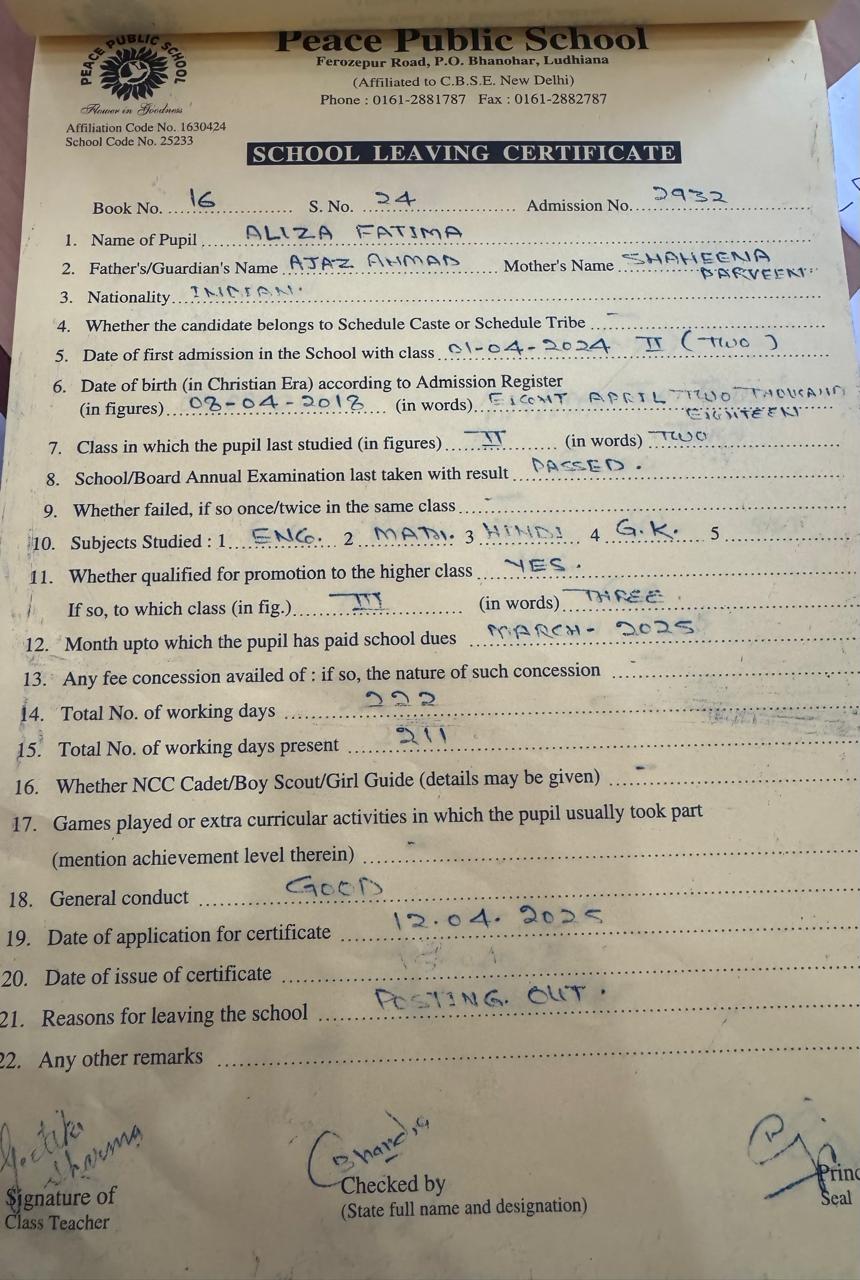 PEACE PUBLIC SCHOOL
Flower in Goodness
Affiliation Code No. 1630424
School Code No. 25233
Peace Public School
Ferozepur Road, P.O. Bhanohar, Ludhiana
(Affiliated to C.B.S.E. New Delhi)
Phone : 0161-2881787 Fax : 0161-2882787
SCHOOL LEAVING CERTIFICATE
Book No. 16 S. No. 24 Admission No. 2932
1. Name of Pupil ALIZA FATIMA
2. Father's/Guardian's Name AJAZ AHMAD Mother's Name SHAHEENA PARVEEN
3. Nationality INDIAN.
4. Whether the candidate belongs to Schedule Caste or Schedule Tribe –
5. Date of first admission in the School with class 01-04-2024 II (TWO)
6. Date of birth (in Christian Era) according to Admission Register
(in figures) 08-04-2018 (in words) EIGHT APRIL TWO THOUSAND EIGHTEEN
7. Class in which the pupil last studied (in figures) II (in words) TWO
8. School/Board Annual Examination last taken with result PASSED.
9. Whether failed, if so once/twice in the same class -
10. Subjects Studied : 1 ENG. 2 MATH. 3 HINDI 4 G.K. 5
11. Whether qualified for promotion to the higher class YES.
If so, to which class (in fig.) III (in words) THREE
12. Month upto which the pupil has paid school dues MARCH - 2025
13. Any fee concession availed of : if so, the nature of such concession -
14. Total No. of working days 222
15. Total No. of working days present 211
16. Whether NCC Cadet/Boy Scout/Girl Guide (details may be given) -
17. Games played or extra curricular activities in which the pupil usually took part
(mention achievement level therein) -
18. General conduct GOOD
19. Date of application for certificate 12.04.2025
20. Date of issue of certificate
21. Reasons for leaving the school POSTING OUT.
22. Any other remarks
Sharma
Bhandia
Signature of
Class Teacher
Checked by
(State full name and designation)
Princ
Seal